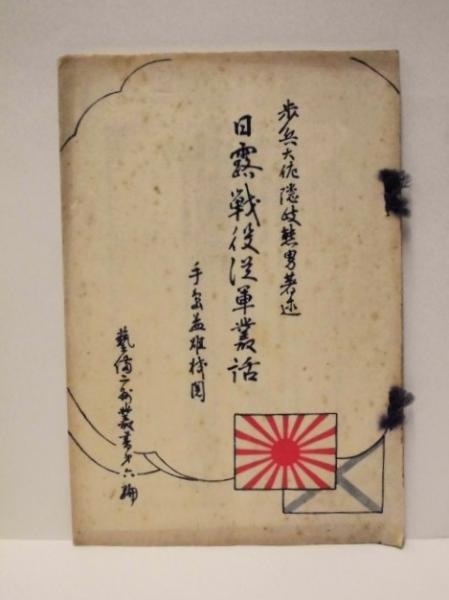 歩兵大佐隠岐熊男著述
日露戦役従軍叢話
手島益雄校閲
藝備二州叢書第六編